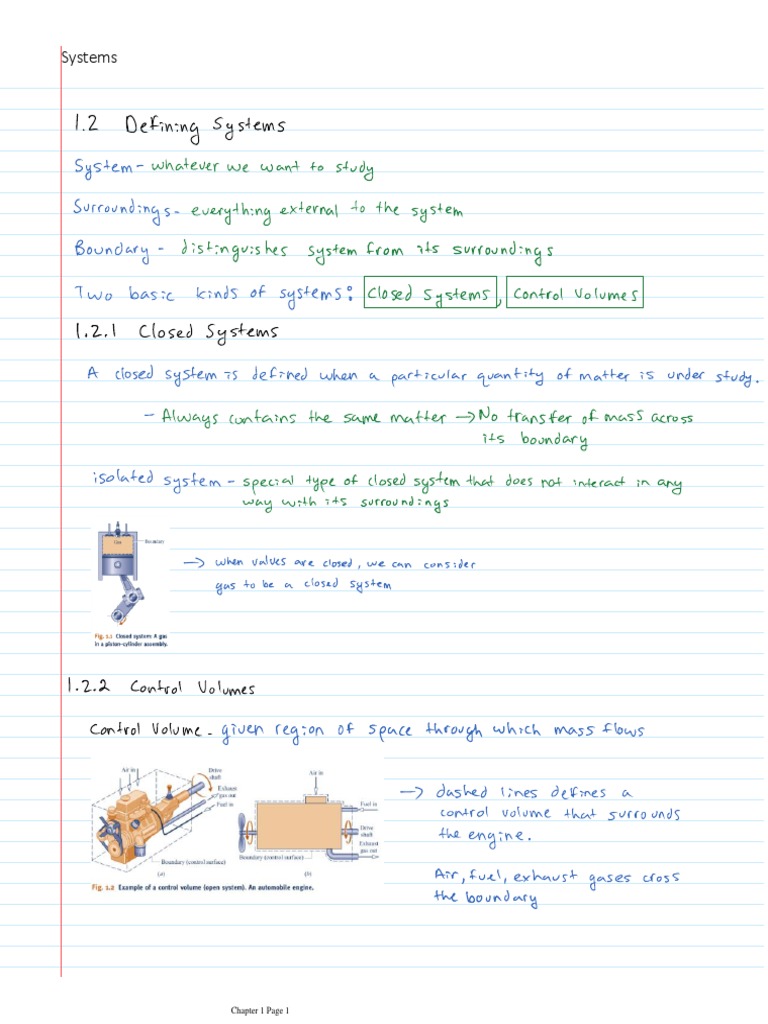 Systems
1.2 Defining Systems
System - whatever we want to study
Surroundings - everything external to the system
Boundary - distinguishes system from its surroundings
Two basic kinds of systems: Closed Systems, Control Volumes
1.2.1 Closed Systems
A closed system is defined when a particular quantity of matter is under study.
- Always contains the same matter → No transfer of mass across
its boundary
isolated system - special type of closed system that does not interact in any
way with its surroundings
Gas
Boundary
→ when values are closed, we can consider
gas to be a closed system
Fig. 1.1 Closed system: A gas
in a piston-cylinder assembly.
1.2.2 Control Volumes
Control Volume - given region of space through which mass flows
Air in
Drive
shaft
Exhaust
gas out
Fuel in
Boundary (control surface)
(a)
Air in
Fuel in
Drive
shaft
Exhaust
gas out
Boundary (control surface)
(b)
Fig. 1.2 Example of a control volume (open system). An automobile engine.
→ dashed lines defines a
control volume that surrounds
the engine.
Air, fuel, exhaust gases cross
the boundary
Chapter 1 Page 1